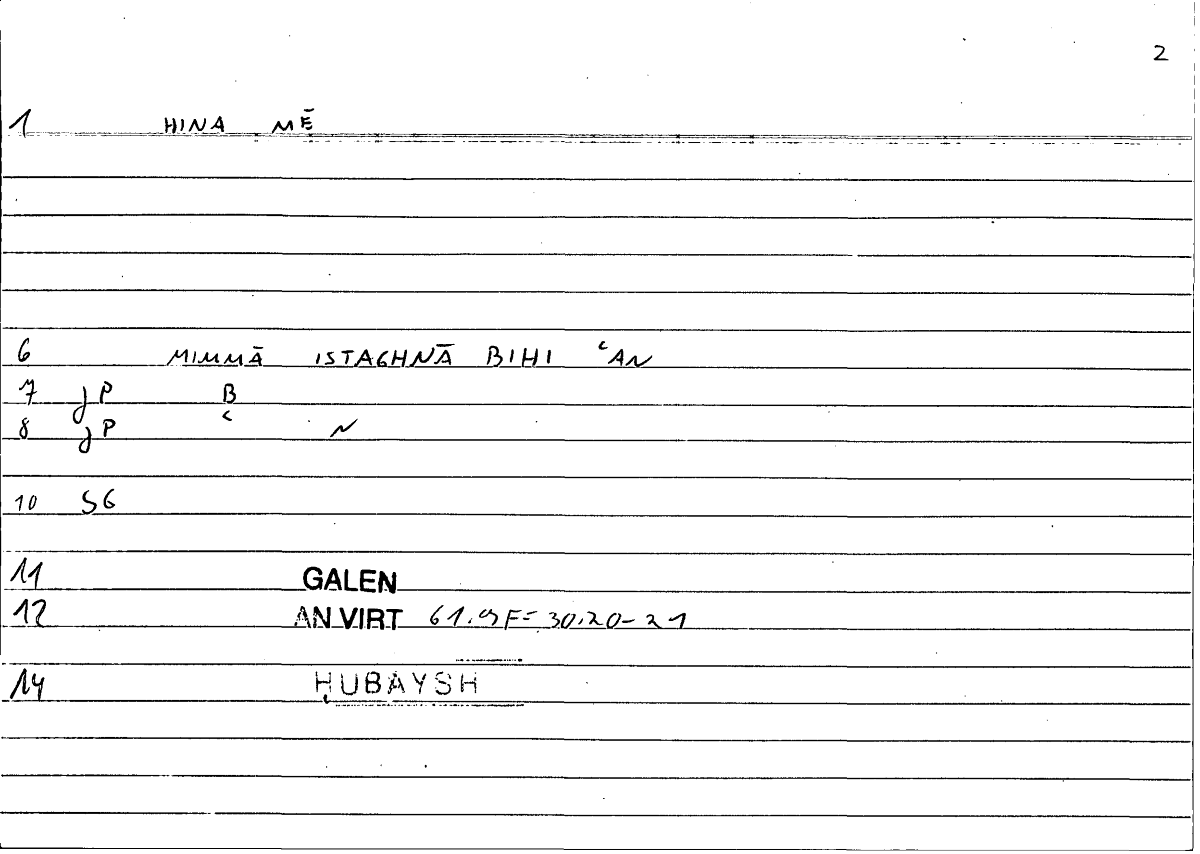 2
1 HINA MĒ
6 MIMMĀ ISTAGHNĀ BIHI ʿAN
7 jP B
8 jP ʿ N
10 SG
11 GALEN
12 AN VIRT 61.9F= 30.20-21
14 ḤUBAYSH